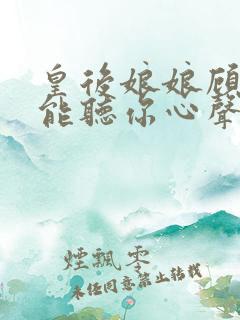 皇後娘娘顾
能聽你心聲
煙飄零
未经同意禁止轉載